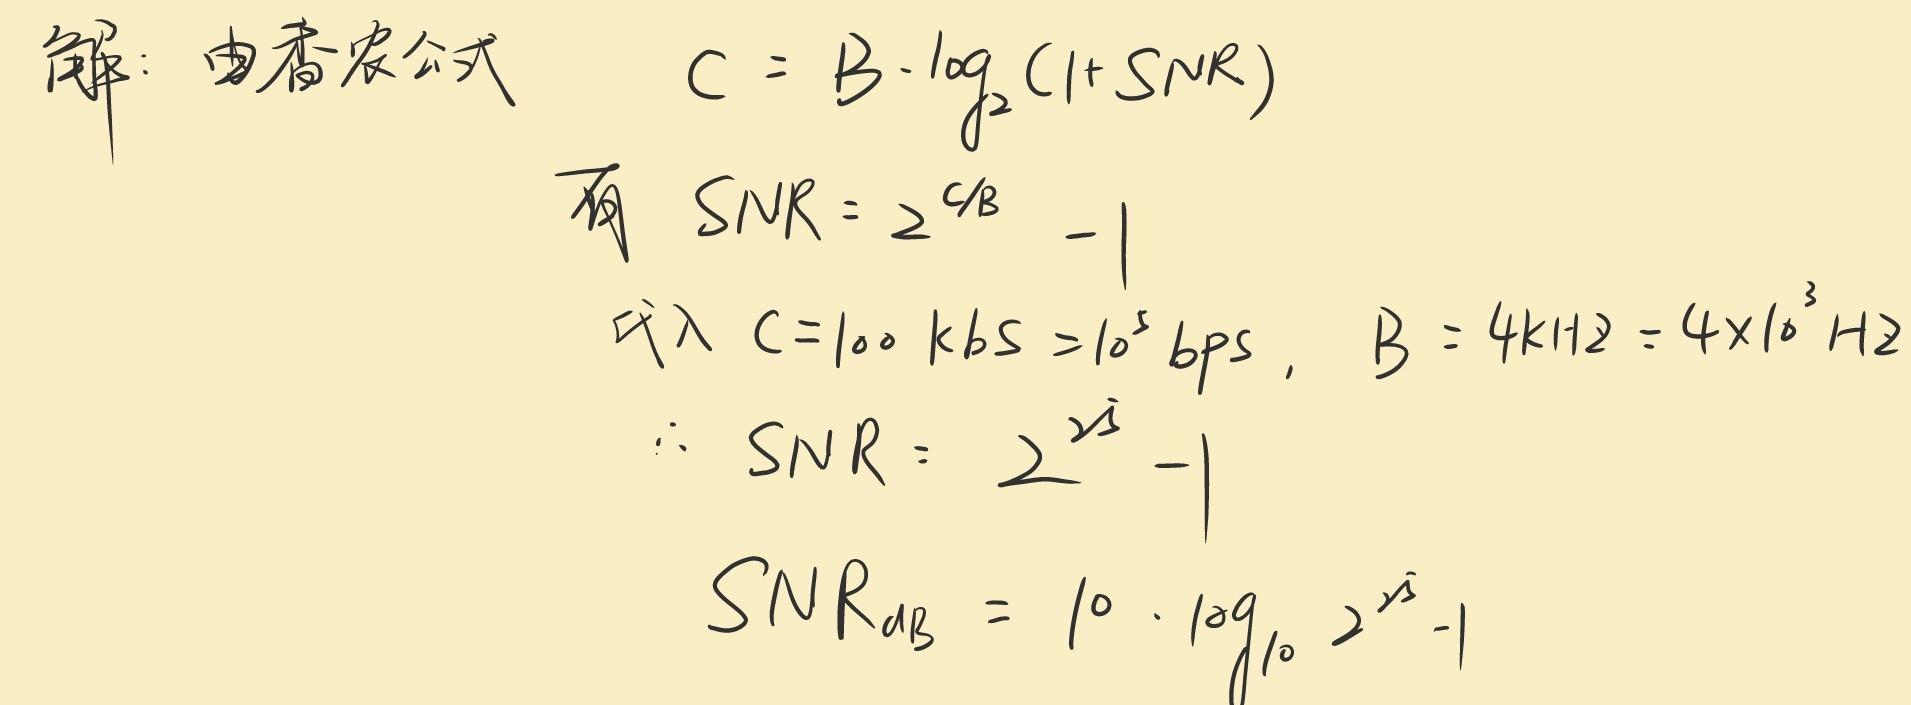 解: 由香农公式 C = B·log₂(1+SNR)
有 SNR = 2^{C/B} -1
代入 C=100 kbs =10⁵ bps, B = 4kHz = 4×10³ Hz
∴ SNR = 2^{25} -1
SNR_{dB} = 10 · log₁₀ 2^{25} -1